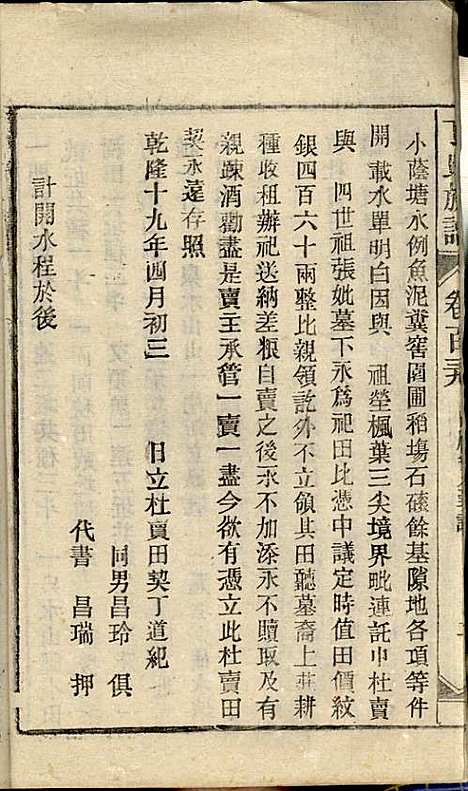 小蔭塘水例魚泥糞窖園圃稻塲石磙餘基隙地各項等件
開載水單明白因與 祖塋楓葉三尖境界毗連託中杜賣
與 四世祖張妣墓下永爲祀田比憑中議定時值田價紋
銀四百六十兩整比親領訖外不立領其田聽墓裔上莊耕
種收租辦祀送納差粮自賣之後永不加添永不贖取及有
親踈酒勸盡是賣主承管一賣一盡今欲有憑立此杜賣田
契永遠存照
乾隆十九年四月初三 日立杜賣田契丁道紀
同男昌玲 俱
代書 昌瑞 押
計開水程於後